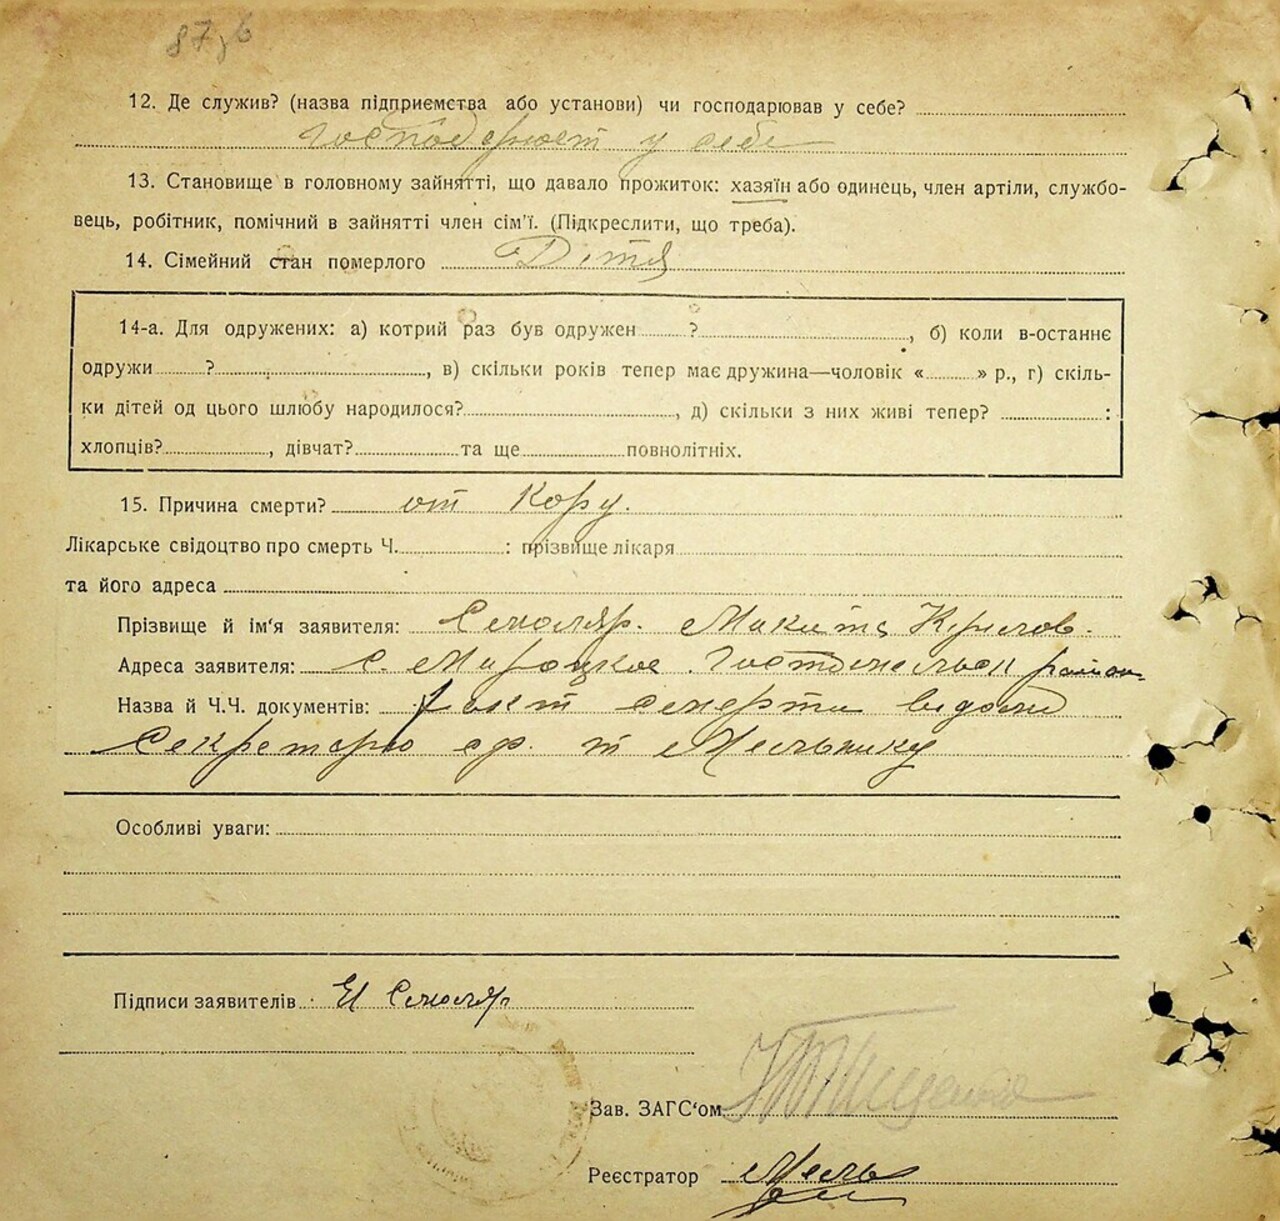 87,б
12. Де служив? (назва підприємства або установи) чи господарював у себе?
у себе
13. Становище в головному зайнятті, що давало прожиток: хазяїн або одинець, член артіли, службо-
вець, робітник, помічний в зайнятті член сім'ї. (Підкреслити, що треба).
14. Сімейний стан померлого Дітя
14-а. Для одружених: а) котрий раз був одружен ? , б) коли в-останнє
одружи ? , в) скільки років тепер має дружина—чоловік « » р., г) скіль-
ки дітей од цього шлюбу народилося? , д) скільки з них живі тепер? :
хлопців? , дівчат? та ще повнолітніх.
15. Причина смерти? от Кору.
Лікарське свідоцтво про смерть Ч. : прізвище лікаря
та його адреса
Прізвище й ім'я заявителя: Смоляр. Микита
Адреса заявителя: С. Мироцкое район
Назва й Ч.Ч. документів: Акт смерти
Секретарю т Мельнику
Особливі уваги:
Підписи заявителів Смоляр
Зав. ЗАГС'ом
Реєстратор